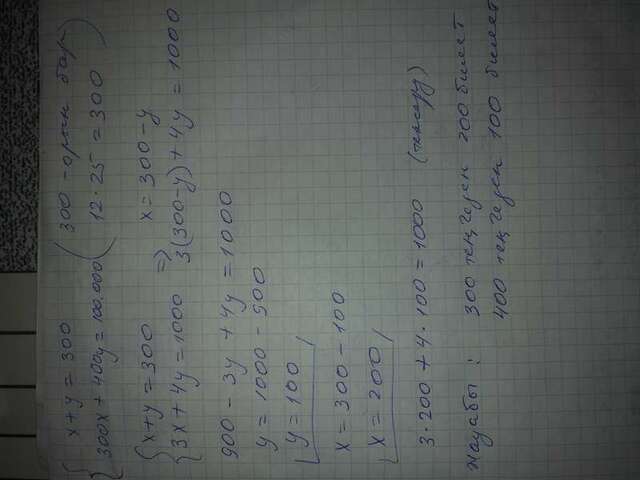 x+y=300 (300 - орын бар
300x+400y=100.000 12·25=300)
x+y=300 => x=300-y
3x+4y=1000 3(300-y)+4y=1000
900-3y+4y=1000
y=1000-900
y=100
x=300-100
x=200
3·200+4·100=1000 (тексеру)
Жауабы: 300 теңгеден 200 билет
400 теңгеден 100 билет